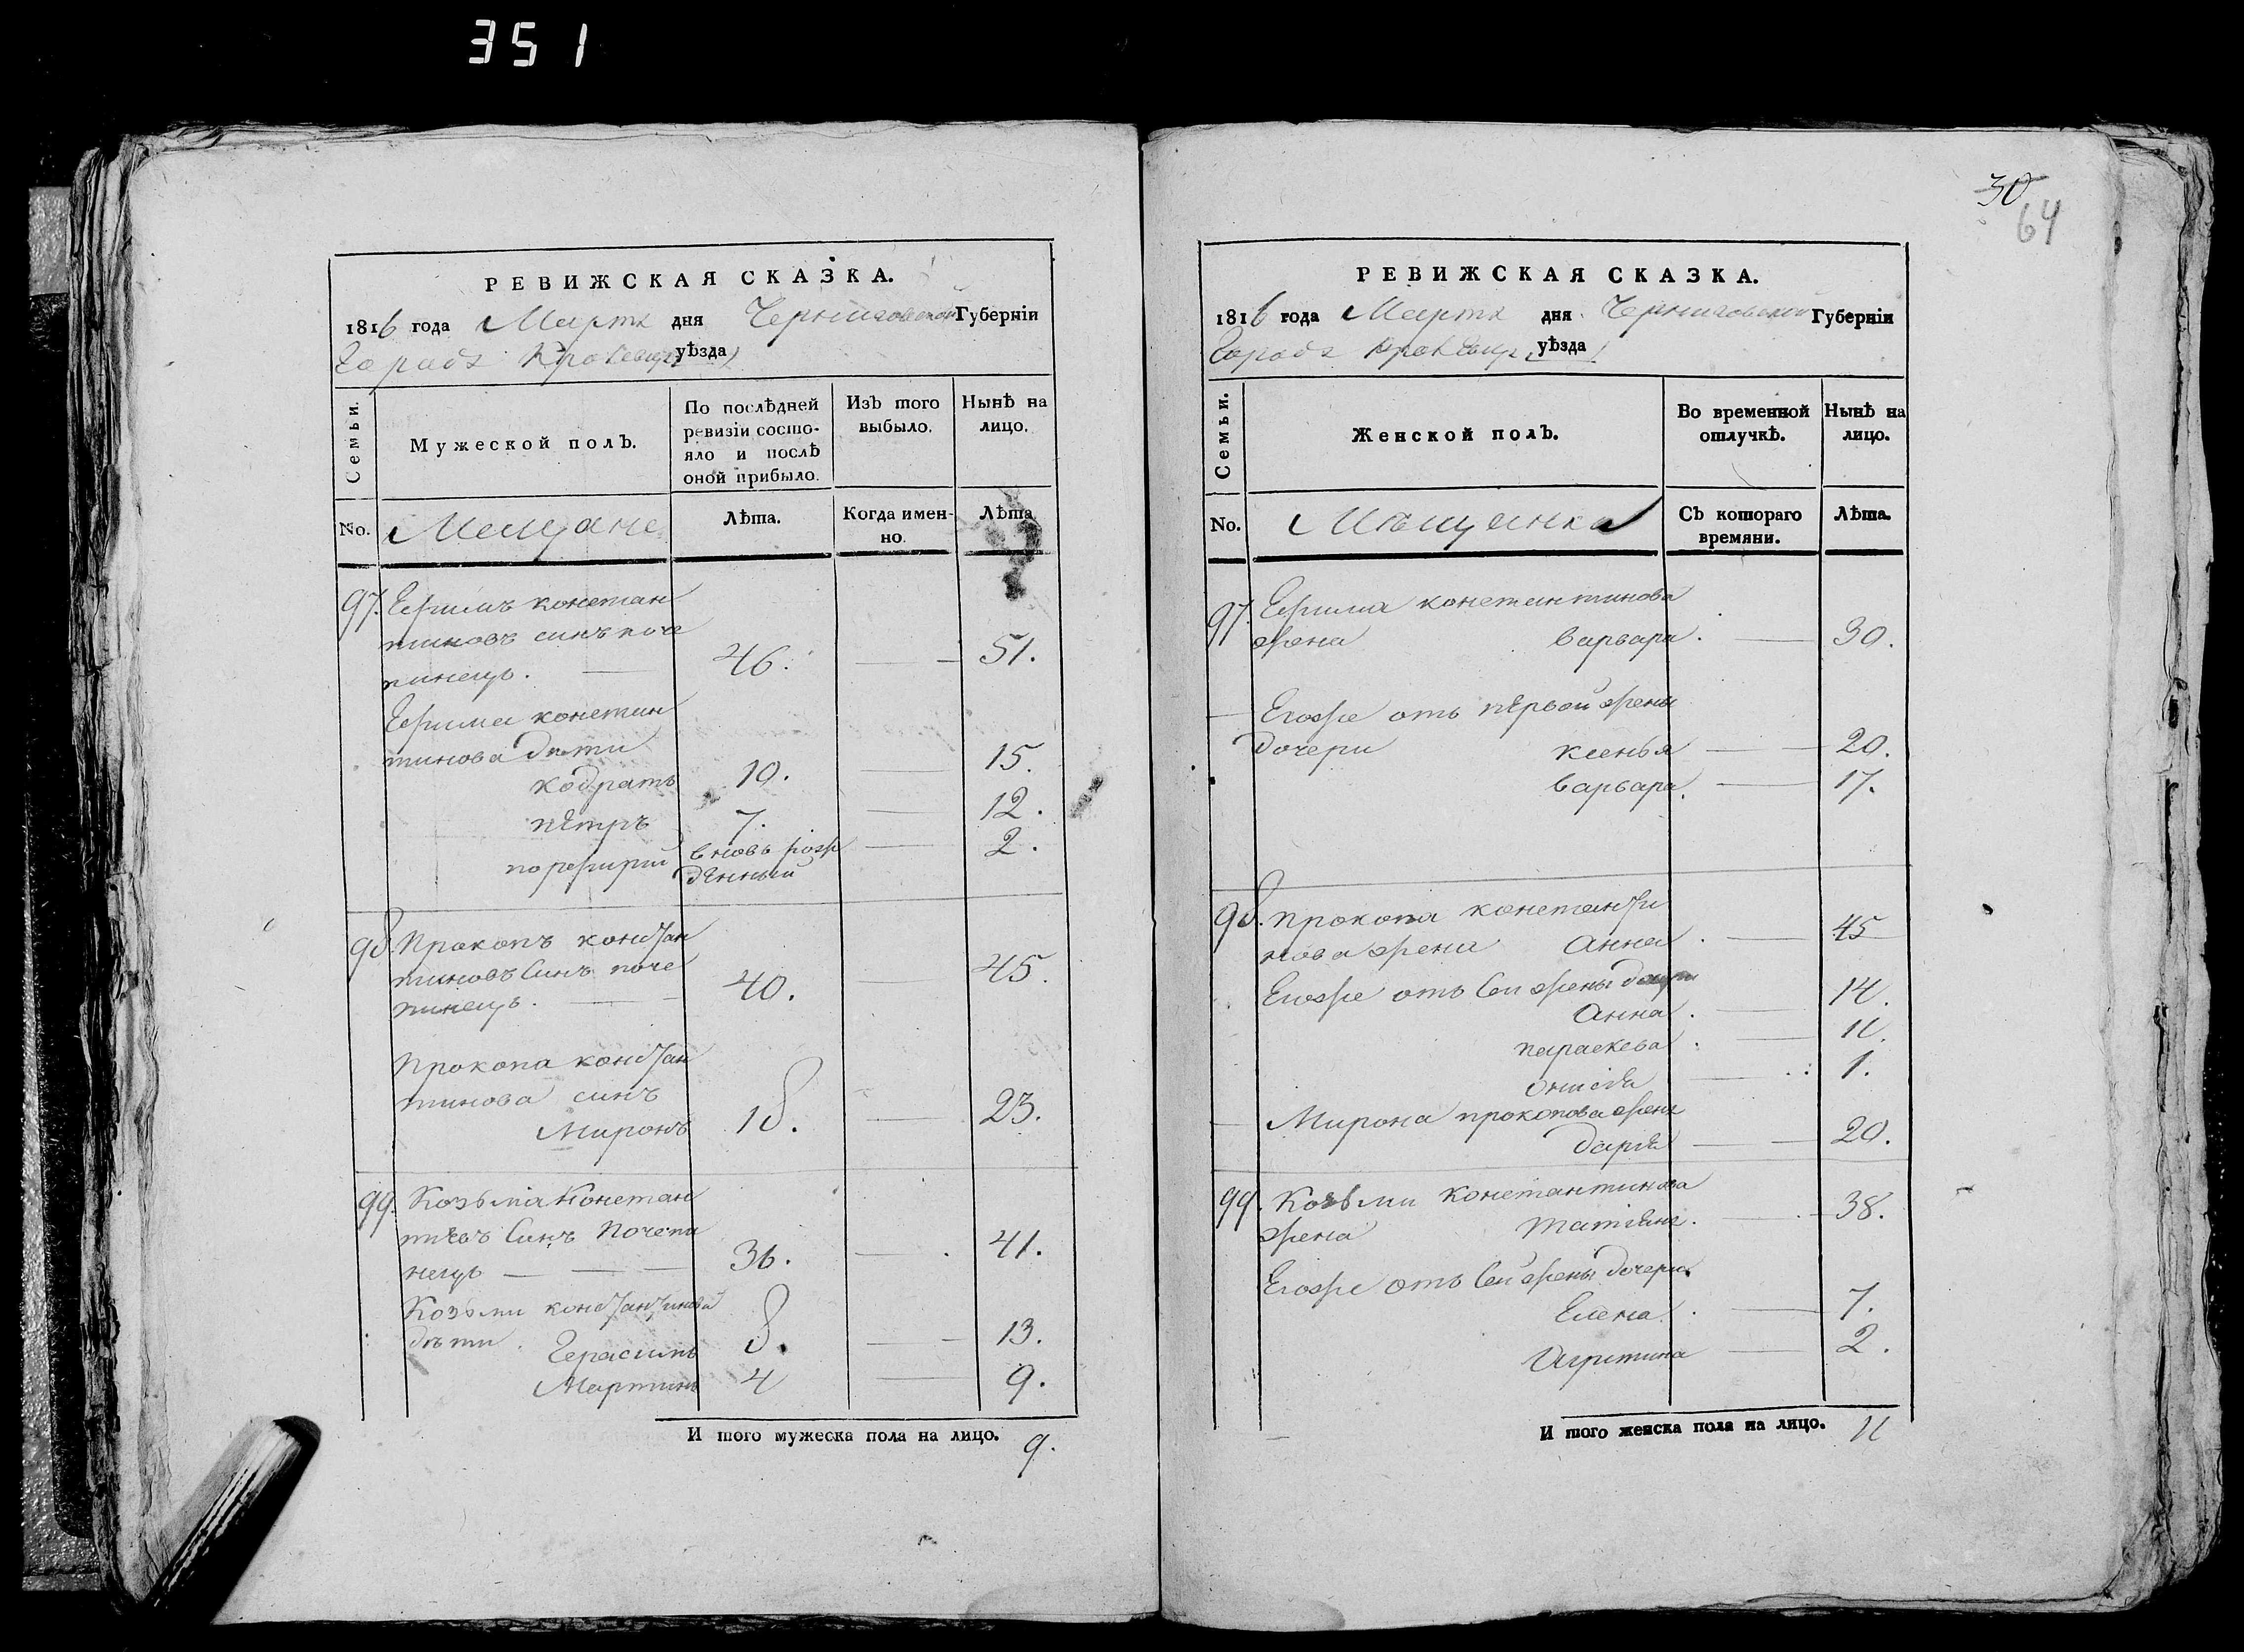 351
РЕВИЖСКАЯ СКАЗКА.
1816 года Марта дня Черниговской Губерніи
Города Кролевца уѣзда
Семьи.
Мужеской полъ.
По послѣдней ревизіи состояло и послѣ оной прибыло.
Изъ того выбыло.
Нынѣ на лицо.
No.
Мещане
Лѣта.
Когда именно.
Лѣта
97. Ефимъ констан
тиновъ синъ поче
пинецъ. 46. 51.
Ефима констан
тинова дѣти
кодратъ 10. 15.
пѣтръ 7. 12.
порфирий вновь рож
дѣнный 2.
98. Прокопъ констан
тиновъ Синъ поче
пинецъ. 40. 45.
Прокопа констан
тинова синъ
Миронъ 18. 23.
99. Козьма Констан
тиновъ Синъ Почепи
нецъ 36. 41.
Козьми константинова
дѣти. Герасимъ 8. 13.
Мартинъ 4 9.
И того мужеска пола на лицо. 9.
30
64
РЕВИЖСКАЯ СКАЗКА.
1816 года Марта дня Черниговской Губерніи
Города Кролевца уѣзда
Семьи.
Женской полъ.
Во временной отлучкѣ.
Нынѣ на лицо.
No.
Мещанки
Съ котораго времяни.
Лѣта.
97. Ефима константинова
жена варвара. 30.
Егоже отъ пѣрвой жены
дочери ксенья 20.
варвара. 17.
98. Прокопа константи
нова жена Анна. 45
Егоже отъ Сей жены
Анна. 14.
параскева. 11.
1.
Мирона прокопова жена
дарья 20.
99. Козьми константинова
жена татіяна. 38.
Егоже отъ Сей жены дочери
Елена. 7.
2.
И того женска пола на лицо. 11